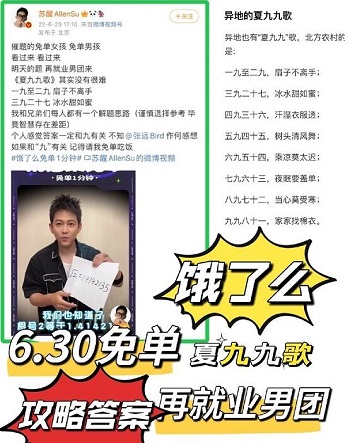 苏醒AllenSu
22-6-29 17:10 来自微博视频号
发布于 北京
+关注
催题的免单女孩 免单男孩
看过来 看过来
明天的题 再就业男团来
《夏九九歌》其实没有很难
一九至二九 扇子不离手
三九二十七 冰水甜如蜜
我和兄弟们每人都有一个解题思路（谨慎选择参考 毕
竟智慧存在差距）
个人感觉答案一定和九有关 不知@张远Bird 作何感想
如果和“九”有关 记得请我免单吃饭
#饿了么免单1分钟# 苏醒AllenSu的微博视频
免单1分钟
我们也知道了
根号2等于1.41421
异地的夏九九歌
异地也有“夏九九”歌，北方农村的
是：
一九至二九，扇子不离手；
三九二十七，冰水甜如蜜；
四九三十六，汗湿衣服透；
五九四十五，树头清风舞；
六九五十四，乘凉莫太迟；
七九六十三，夜眠要盖单；
八九七十二，当心莫受寒；
九九八十一，家家找棉衣。
饿了么
6.30免单
夏九九歌
攻略答案
再就业男团